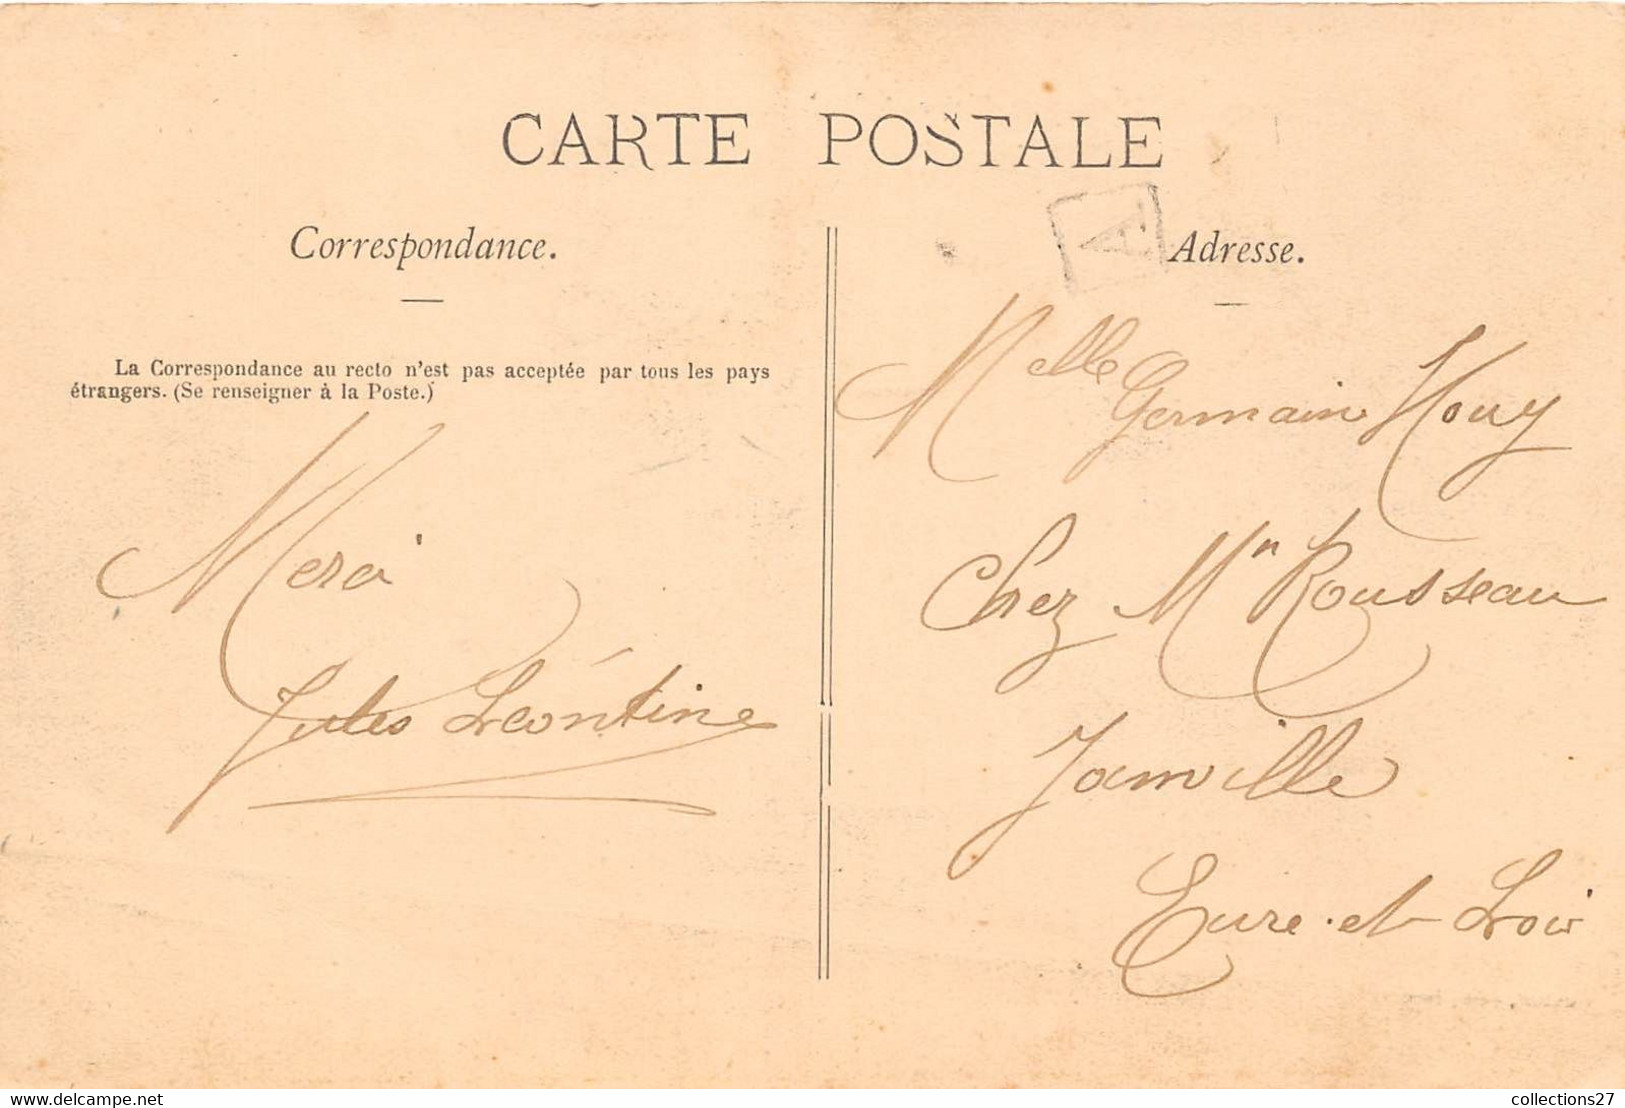 CARTE POSTALE
Correspondance.
La Correspondance au recto n'est pas acceptée par tous les pays
étrangers. (Se renseigner à la Poste.)
Merci
Jules Léontine
A
Adresse.
Melle Germain Houy
Chez Mn Rousseau
Janville
Eure-et-Loir
collections27